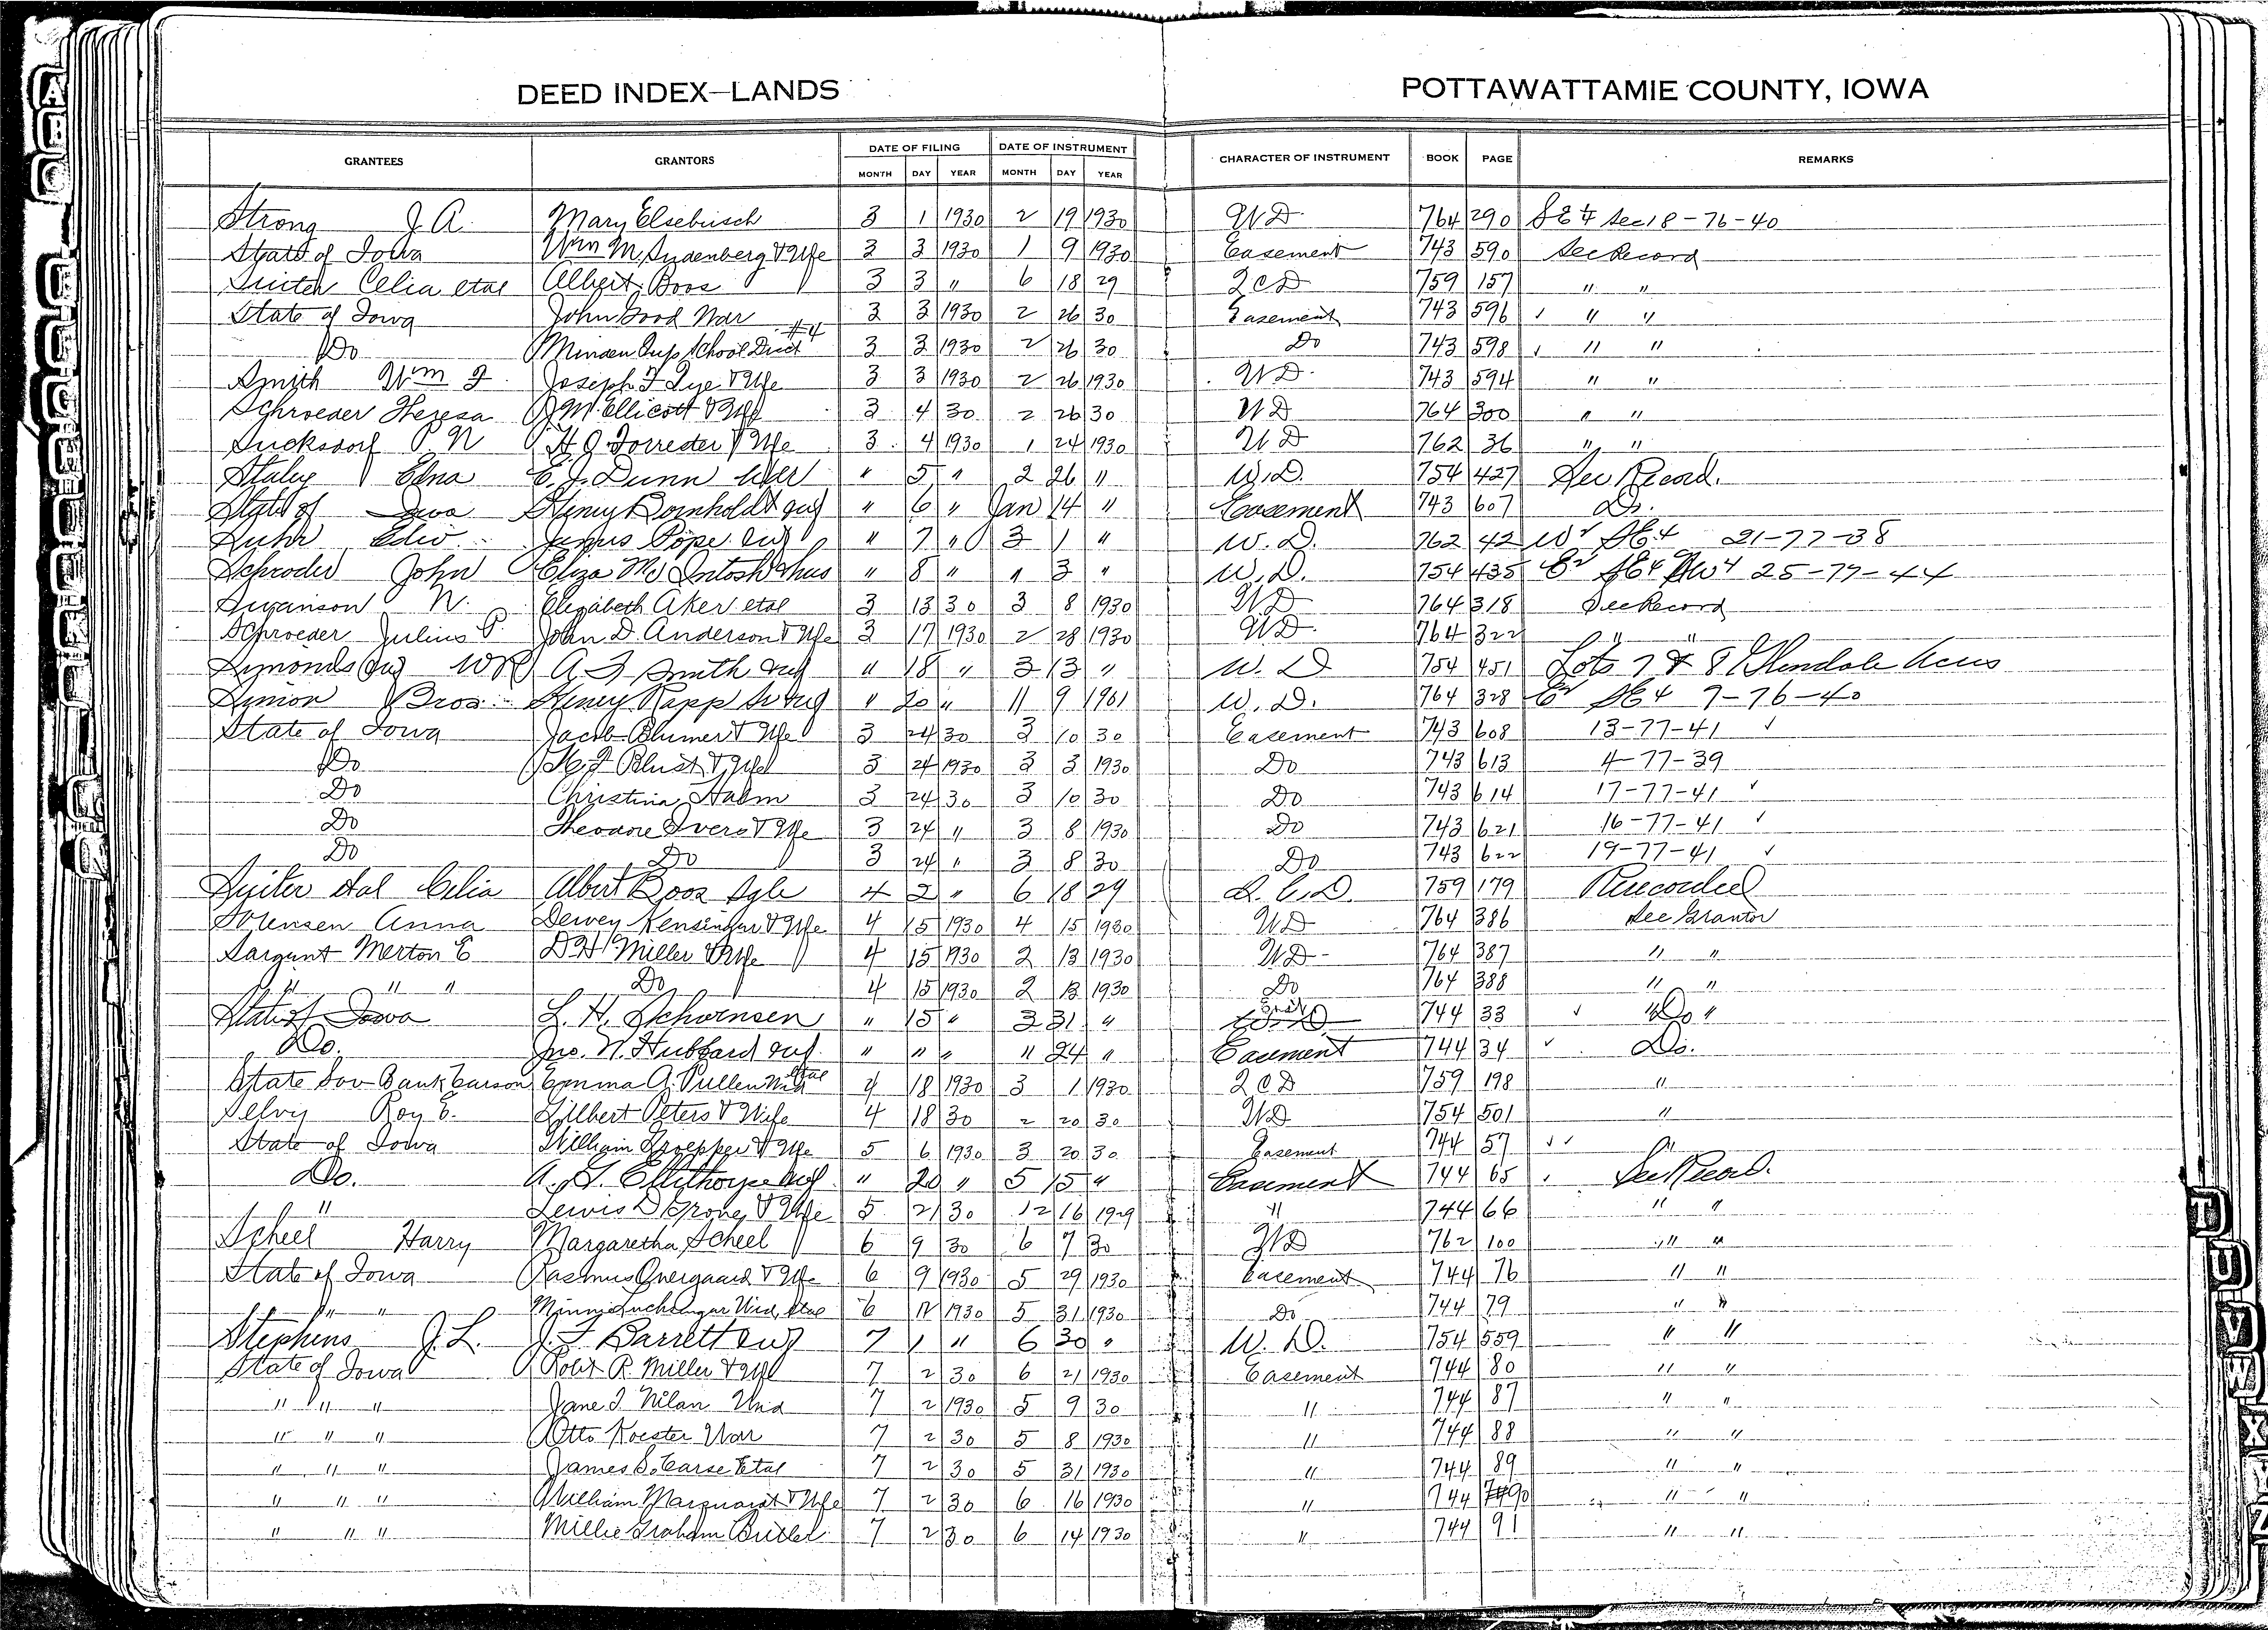 DEED INDEX—LANDS POTTAWATTAMIE COUNTY, IOWA
GRANTEES GRANTORS DATE OF FILING DATE OF INSTRUMENT CHARACTER OF INSTRUMENT BOOK PAGE REMARKS
MONTH DAY YEAR MONTH DAY YEAR
Strong J A. Mary Elsebusch 3 1 1930 2 19 1930 WD 764 290 SE 4 Sec 18-76-40
State of Iowa Wm M. & Wfe 3 3 1930 1 9 1930 Easement 743 590 See Record
Suiter Celia etal Albert Boos 3 3 " 6 18 29 QCD 759 157 " "
State of Iowa John Good 3 3 1930 2 26 30 Easement 743 596 ✓ " "
Do Minden School Dist #4 3 3 1930 2 26 30 Do 743 598 ✓ " "
Smith Wm F. Joseph F Pye & Wfe 3 3 1930 2 26 1930 WD 743 594 " "
Schroeder Theresa J M. Ellicott & Wfe 3 4 30 2 26 30 WD 764 300 " "
Sucksdorf P. N H. J. Forrester & Wfe 3 4 1930 1 24 1930 WD 762 36 " "
Staley Edna E. J. Dunn " 5 " 2 26 " W.D. 754 427 See Record.
State of Iowa Henry Bornholdt " 6 " Jan 14 " Easement 743 607 Do.
Ruhr Edw Pope " 7 " 3 1 " W.D. 762 42 W2 SE4 21-77-38
Schroder John Eliza McIntosh & hus " 8 " " 3 " W.D. 754 435 E2 SE4 SW4 25-79-44
Swanson N. Elizabeth Aker etal 3 13 30 3 8 1930 WD 764 318 See Record
Schroeder Julius P. John D. Anderson & Wfe 3 17 1930 2 28 1930 WD. 764 322 " "
Symonds W R A. F Smith " 18 " 3 13 " W. D 754 451 Lots 7 & 8 Glendale Acres
Simon Bros. Henry Rapp Sr " 20 " 11 9 1901 W.D. 764 328 E2 SE4 7-76-40
State of Iowa Jacob Blumer & Wfe 3 24 30 3 10 30 Easement 743 608 13-77-41 ✓
Do & Wfe 3 24 1930 3 3 1930 Do 743 613 4-77-39
Do Christina Halm 3 24 30 3 10 30 Do 743 614 17-77-41 ✓
Do Theodore Ivers & Wfe 3 24 " 3 8 1930 Do 743 621 16-77-41 ✓
Do Do 3 24 " 3 8 30 Do 743 622 19-77-41 ✓
Suiter etal Celia Albert Boos Sgle 4 2 " 6 18 29 Q.C.D. 759 179 Rerecorded
Sorensen Anna Dewey Kensinger & Wfe 4 15 1930 4 15 1930 WD 764 386 See Grantor
Sargent Merton E D H Miller & Wfe 4 15 1930 2 13 1930 WD 764 387 " "
" " " Do 4 15 1930 2 13 1930 Do 764 388 " "
State of Iowa L. H. Schornsen " 15 " 3 31 " 744 33 ✓ " Do "
Do. Jno. N. Hubbard " " " " 24 " Easement 744 34 ✓ Do.
State Sav Bank Carson Emma A. Pullen etal 4 18 1930 3 1 1930 QCD 759 198 "
Selvy Roy E. Gilbert Peters & Wife 4 18 30 2 20 30 WD 754 501 "
State of Iowa William & Wfe 5 6 1930 3 20 30 Easement 744 57 ✓✓ "
Do. A. Ellithorpe " 20 " 5 15 " Easement 744 65 See Record.
" Lewis D Grove & Wfe 5 21 30 12 16 1929 " 744 66 " "
Scheel Harry Margaretha Scheel 6 9 30 6 7 30 WD 762 100 " "
State of Iowa Rasmus Overgaard & Wfe 6 9 1930 5 29 1930 Easement 744 76 " "
" " Minnie etal 6 12 1930 5 31 1930 Do 744 79 " "
Stephens J.L. J. F Barrett 7 1 " 6 30 " W. D. 754 559 " "
State of Iowa Robt R. Miller & Wfe 7 2 30 6 21 1930 Easement 744 80 " "
" " " Jane I. Nilan 7 2 1930 5 9 30 " 744 87 " "
" " " Otto Koester 7 2 30 5 8 1930 " 744 88 " "
" " " James S. Carse Etal 7 2 30 5 31 1930 " 744 89 " "
" " " William Marquardt & Wfe 7 2 30 6 16 1930 " 744 90 " "
" " " Millie Graham Butler 7 2 30 6 14 1930 " 744 91 " "